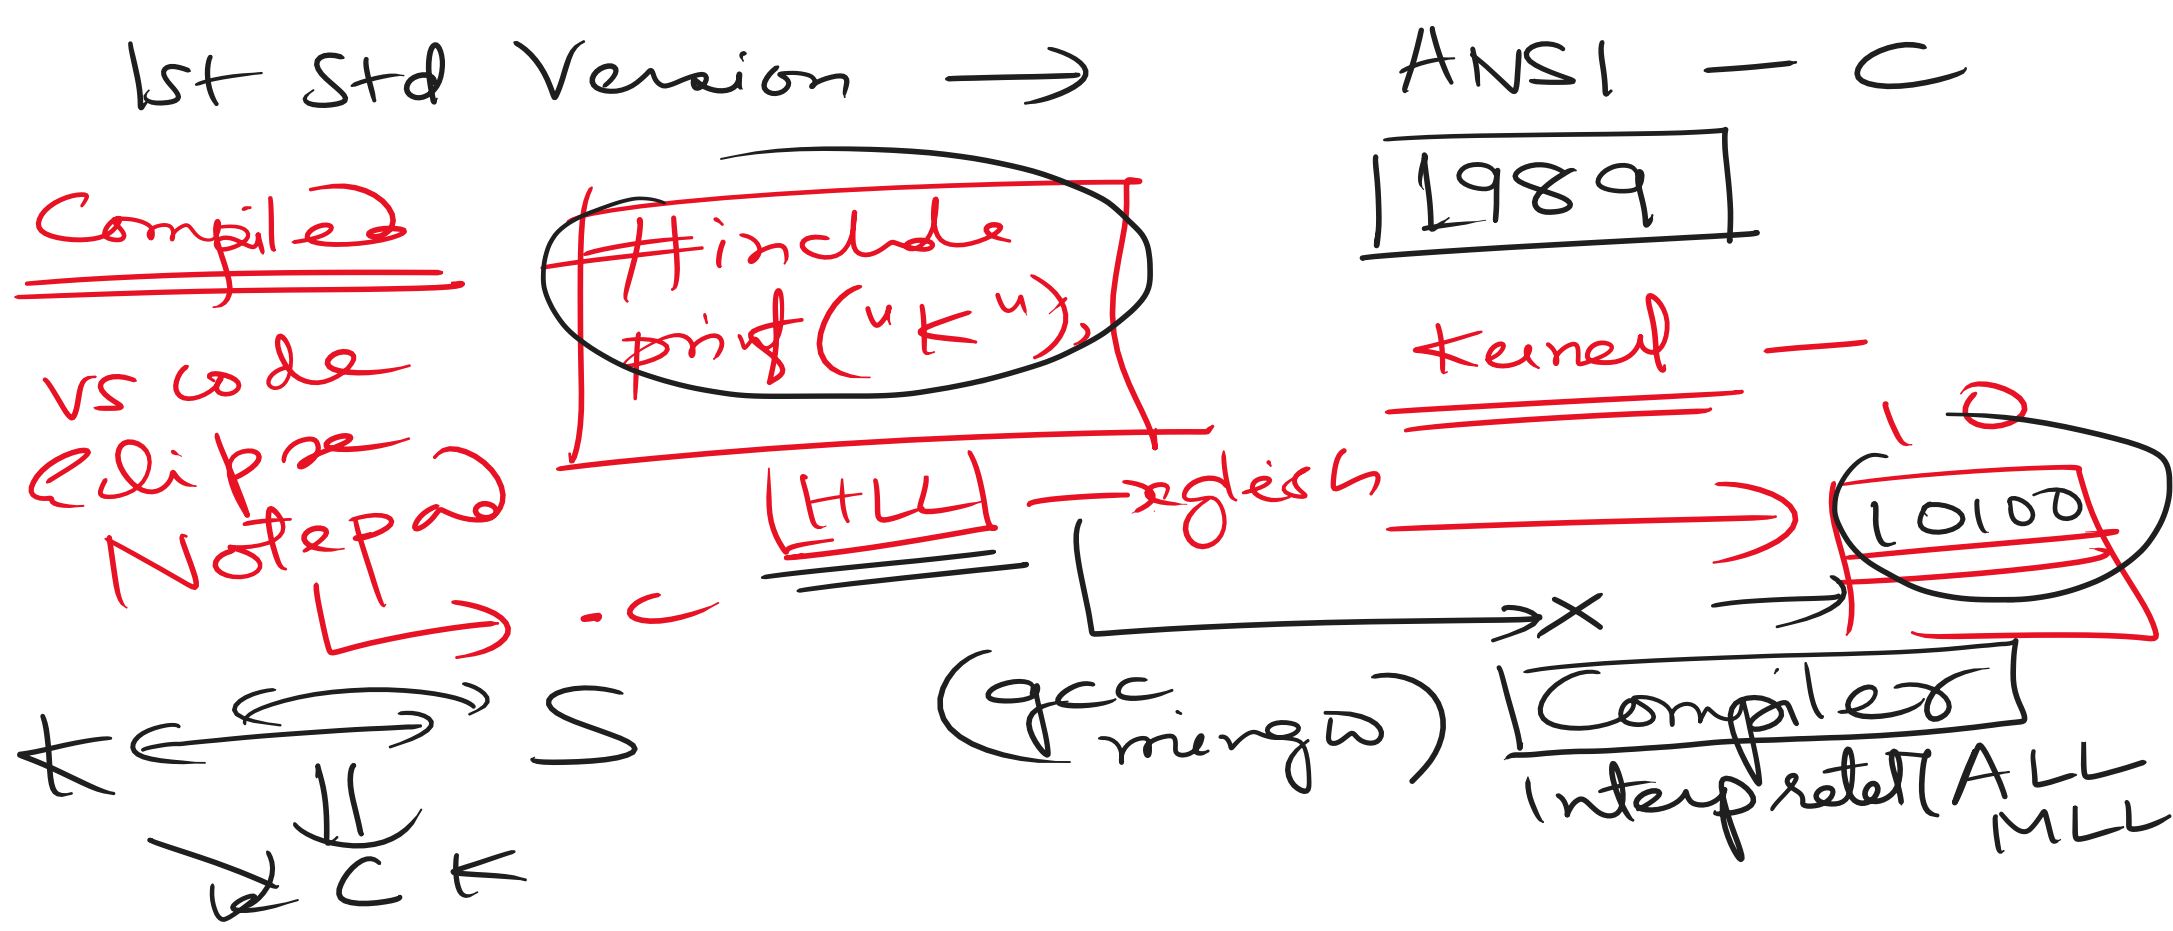 1st Std Version → ANSI - C
1989
Compiled
#include
printf("K");
Kernel -
vs code
Eclipse
Notepad
→ .c
HLL → English → 10100
1 0
X → Compiler
(gcc
mingw)
Interpreter (ALL
MLL
K ↔ S
C K